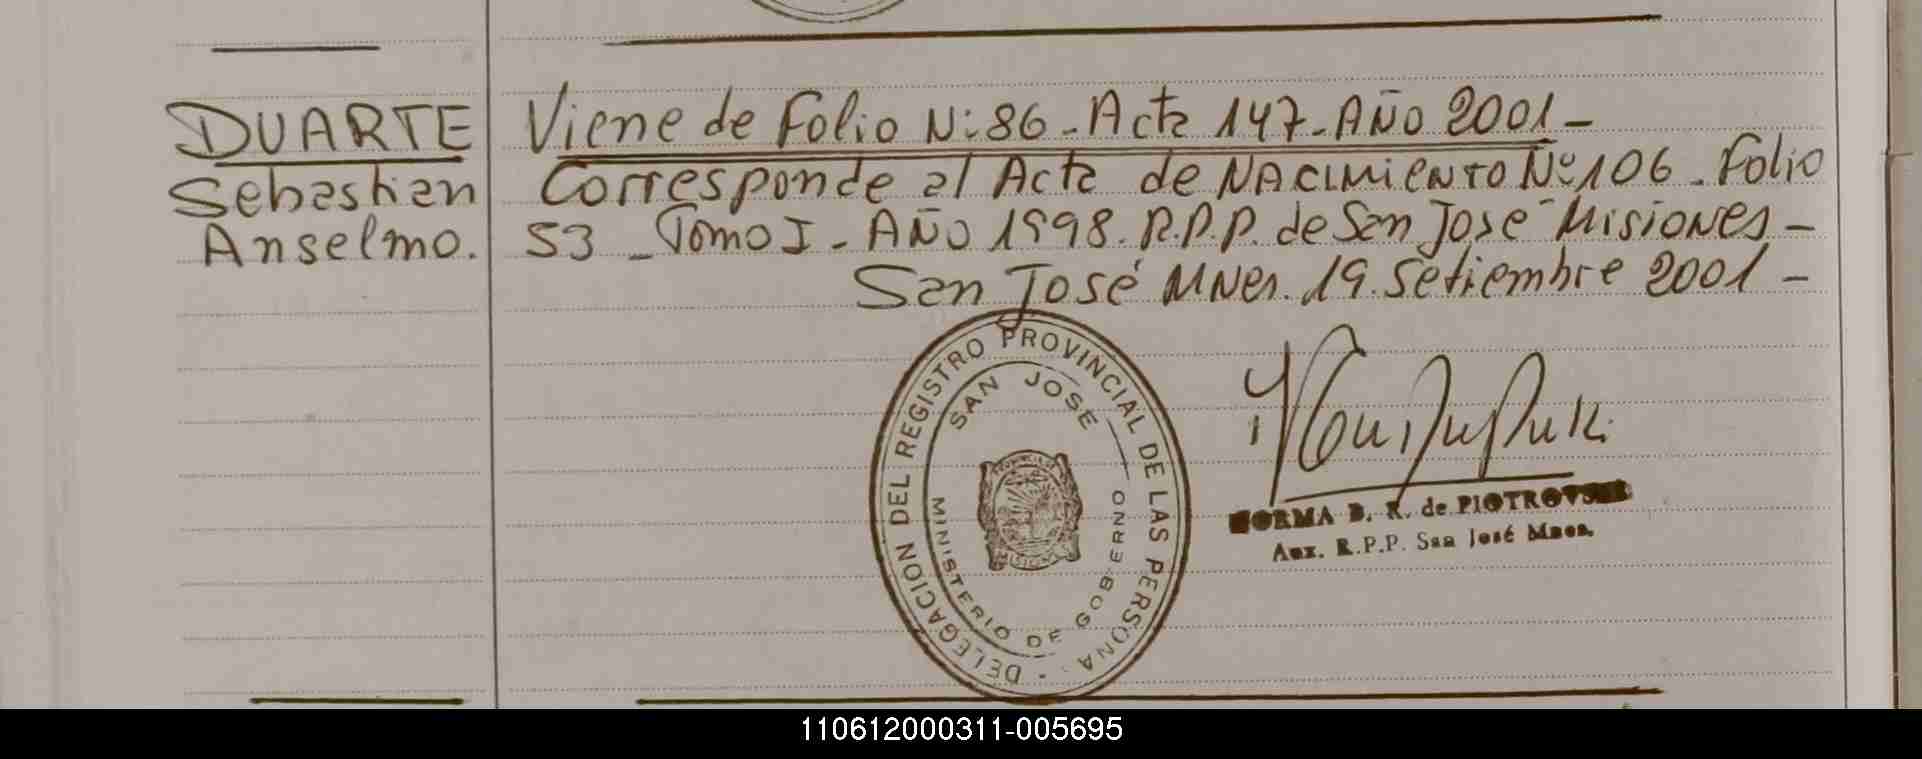 DUARTE
Sebastian
Anselmo.
Viene de Folio N: 86 - Acta 147 - AÑO 2001 -
Corresponde al Acta de NACIMIENTO Nº 106 - Folio
53 - Tomo I - AÑO 1998. R.P.P. de San José - Misiones -
San José MNes. 19. Setiembre 2001 -
DELEGACION DEL REGISTRO PROVINCIAL DE LAS PERSONA
SAN JOSÉ
MINISTERIO DE GOBIERNO
NORMA B. K. de PIOTROVSKI
Aux. R.P.P. San José Mnes.
110612000311-005695